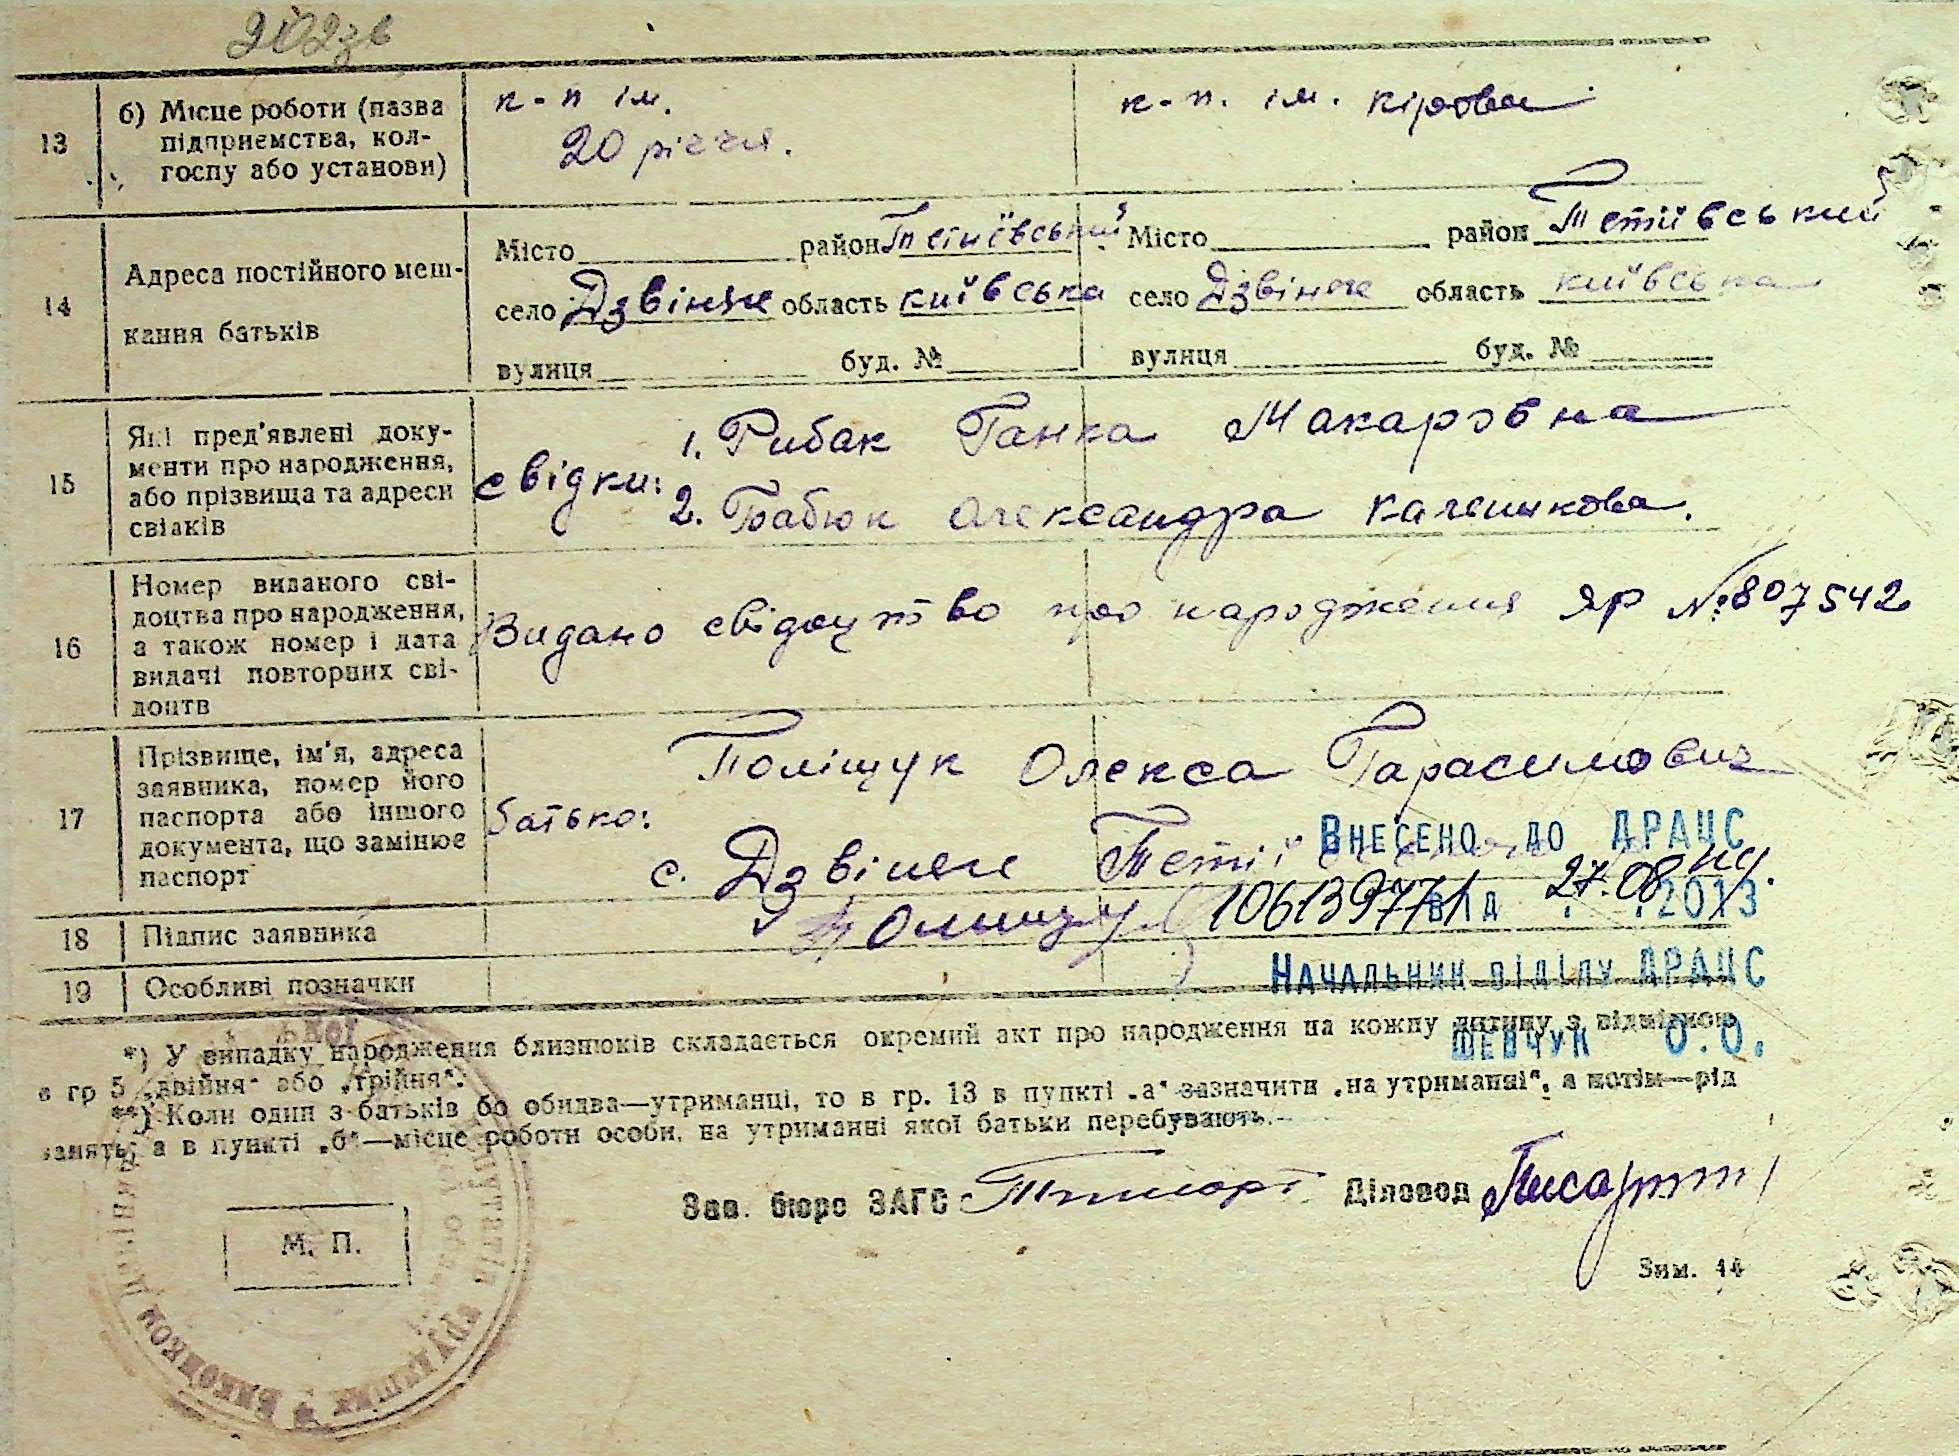 202зв
13 б) Місце роботи (назва підприємства, колгоспу або установи)
к-п ім. 20 річчя.
к-п. ім. кірова
14 Адреса постійного мешкання батьків
Місто район Тетиївський
село Дзвіняче область київська
вулиця буд. №
Місто район Тетіївський
село Дзвіняче область київська
вулиця буд. №
15 Які пред'явлені документи про народження, або прізвища та адреси свідків
свідки: 1. Рибак Ганка Макаровна
2. Бабюк Олександра Калениковa.
16 Номер виданого свідоцтва про народження, а також номер і дата видачі повторних свідоцтв
Видано свідоцтво про народження ЯР № 807542
17 Прізвище, ім'я, адреса заявника, номер його паспорта або іншого документа, що замінює паспорт
батько: Поліщук Олекса Гарасимович
с. Дзвіняче
Внесено до ДРАЦС
106139771 від 27.08.2013
18 Підпис заявника
19 Особливі позначки
Начальник відділу ДРАЦС
Шевчук О.О.
*) У випадку народження близнюків складається окремий акт про народження на кожну дитину з відміткою
в гр 5 „двійня" або „трійня".
**) Коли один з батьків бо обидва—утриманці, то в гр. 13 в пункті „а" зазначити „на утриманні", а потім—рід
занять; а в пункті „б"—місце роботи особи, на утриманні якої батьки перебувають.
Зав. бюро ЗАГС Діловод
М. П.
Зим. 14